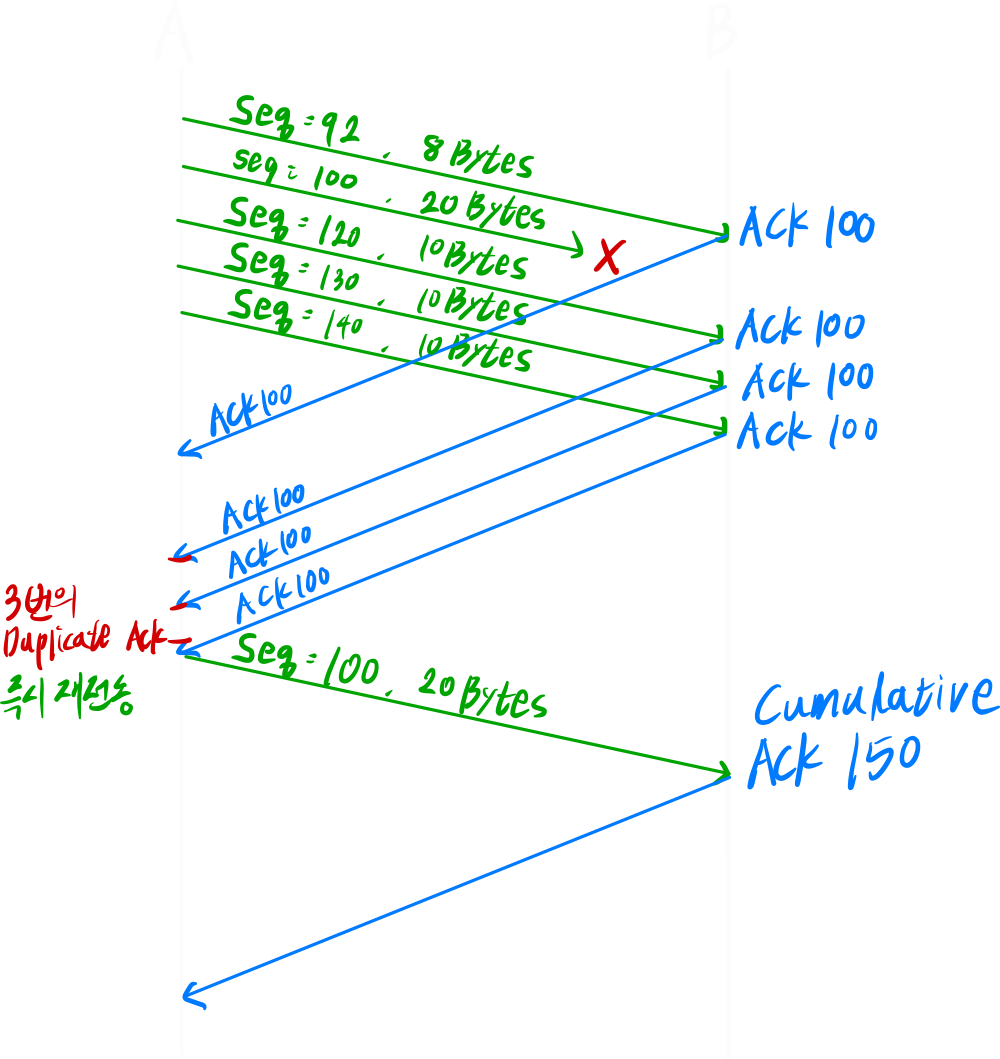 A
B
Seq = 92 , 8 Bytes
seq = 100 , 20 Bytes
Seq = 120 , 10 Bytes
Seq = 130 , 10 Bytes
Seq = 140 , 10 Bytes
Ack 100
Ack 100
Ack 100
Ack 100
Ack 100
Ack 100
Ack 100
Ack 100
3번의
Duplicate Ack
즉시 재전송
Seq = 100 , 20 Bytes
Cumulative
Ack 150